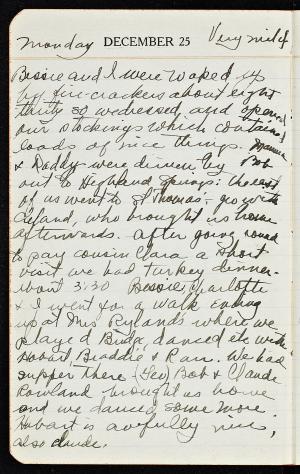 Monday DECEMBER 25 Very mild
Bessie and I were waked up
by fire-crackers about eight
thirty so we dressed and opened
our stockings which contained
loads of nice things. Mamma
& Daddy were driven by Bob
out to Highland Springs; the rest
of us went to St Thomas- with
Leland, who brought us home
afterwards. After going round
to pay cousin Clara a short
visit we had turkey dinner
about 3:30 Bessie, Charlotte
& I went for a walk ending
up at Mrs Rylands where we
played Bunko, danced etc with
Hobart, Braddie & Ran. We had
supper there (Geo) Bob & Claude
Rowland brought us home
and we danced some more.
Hobart is awfully nice,
also Claude.